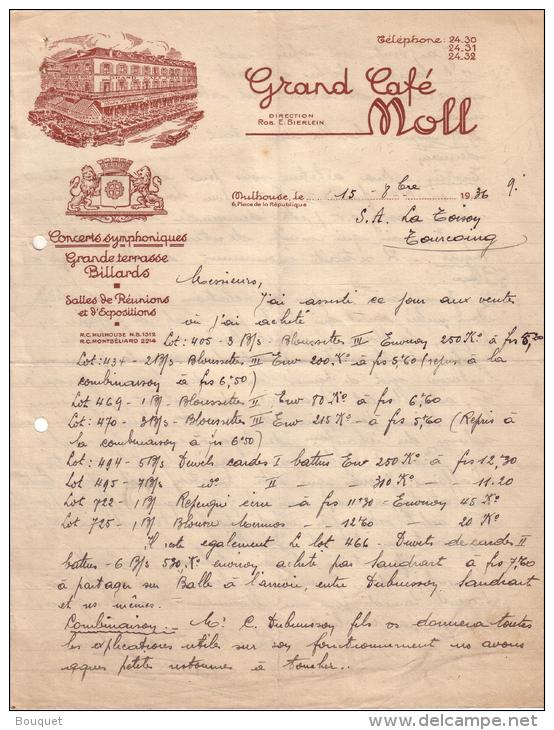 Téléphone: 24.30
24.31
24.32
Grand Café
Moll
DIRECTION
ROB. E. BIERLEIN
Mulhouse, le 15 - 8bre 1936
6, Place de la République
S. A. La Toison
Tourcoing
Concerts symphoniques
Grande terrasse
Billards
Salles de Réunions
et d'Expositions
R.C. MULHOUSE N.B. 1312
R.C. MONTBÉLIARD 2214
Messieurs,
J'ai assisté ce jour aux ventes
où j'ai acheté
Lot: 405 - 3 B/s - Blousettes III Environ 250 K° à frs 5,30
Lot: 434 - 2 B/s - Blousettes III Env 200 K° à frs 5"60 (repris à la
combinaison à frs 6"50)
Lot 469 - 1 B/ Blousettes II Env 80 K° à frs 6"60
Lot: 470 - 3 B/s - Blousettes III Env 215 K° - à frs 5"60 (Repris à
la combinaison à frs 6"50)
Lot: 494 - 5 B/s Duvets cardes I battus Env 250 K° à frs 12"30
Lot 495 - 7 B/s d° II - 310 K° - 11.20
Lot 722 - 1 B/ Repeigné écru à frs 11"30 - Environ 45 K°
Lot 725 - 1 B/ Blousse Mérinos - 12"60 - 20 K°
Il reste également le lot 466 - Duvets de cardes II
battus - 6 B/s 530 K° environ, acheté par Sandrart à frs 7"60
à partager sur Balle à l'arrivée, entre Dubuisson, Sandrart
et ns mêmes.
Combinaison: - Mr C. Dubuisson fils vs donnera toutes
les explications utiles sur son fonctionnement ns avons
qques petites ristournes à toucher..
Bouquet
www.delcampe.net